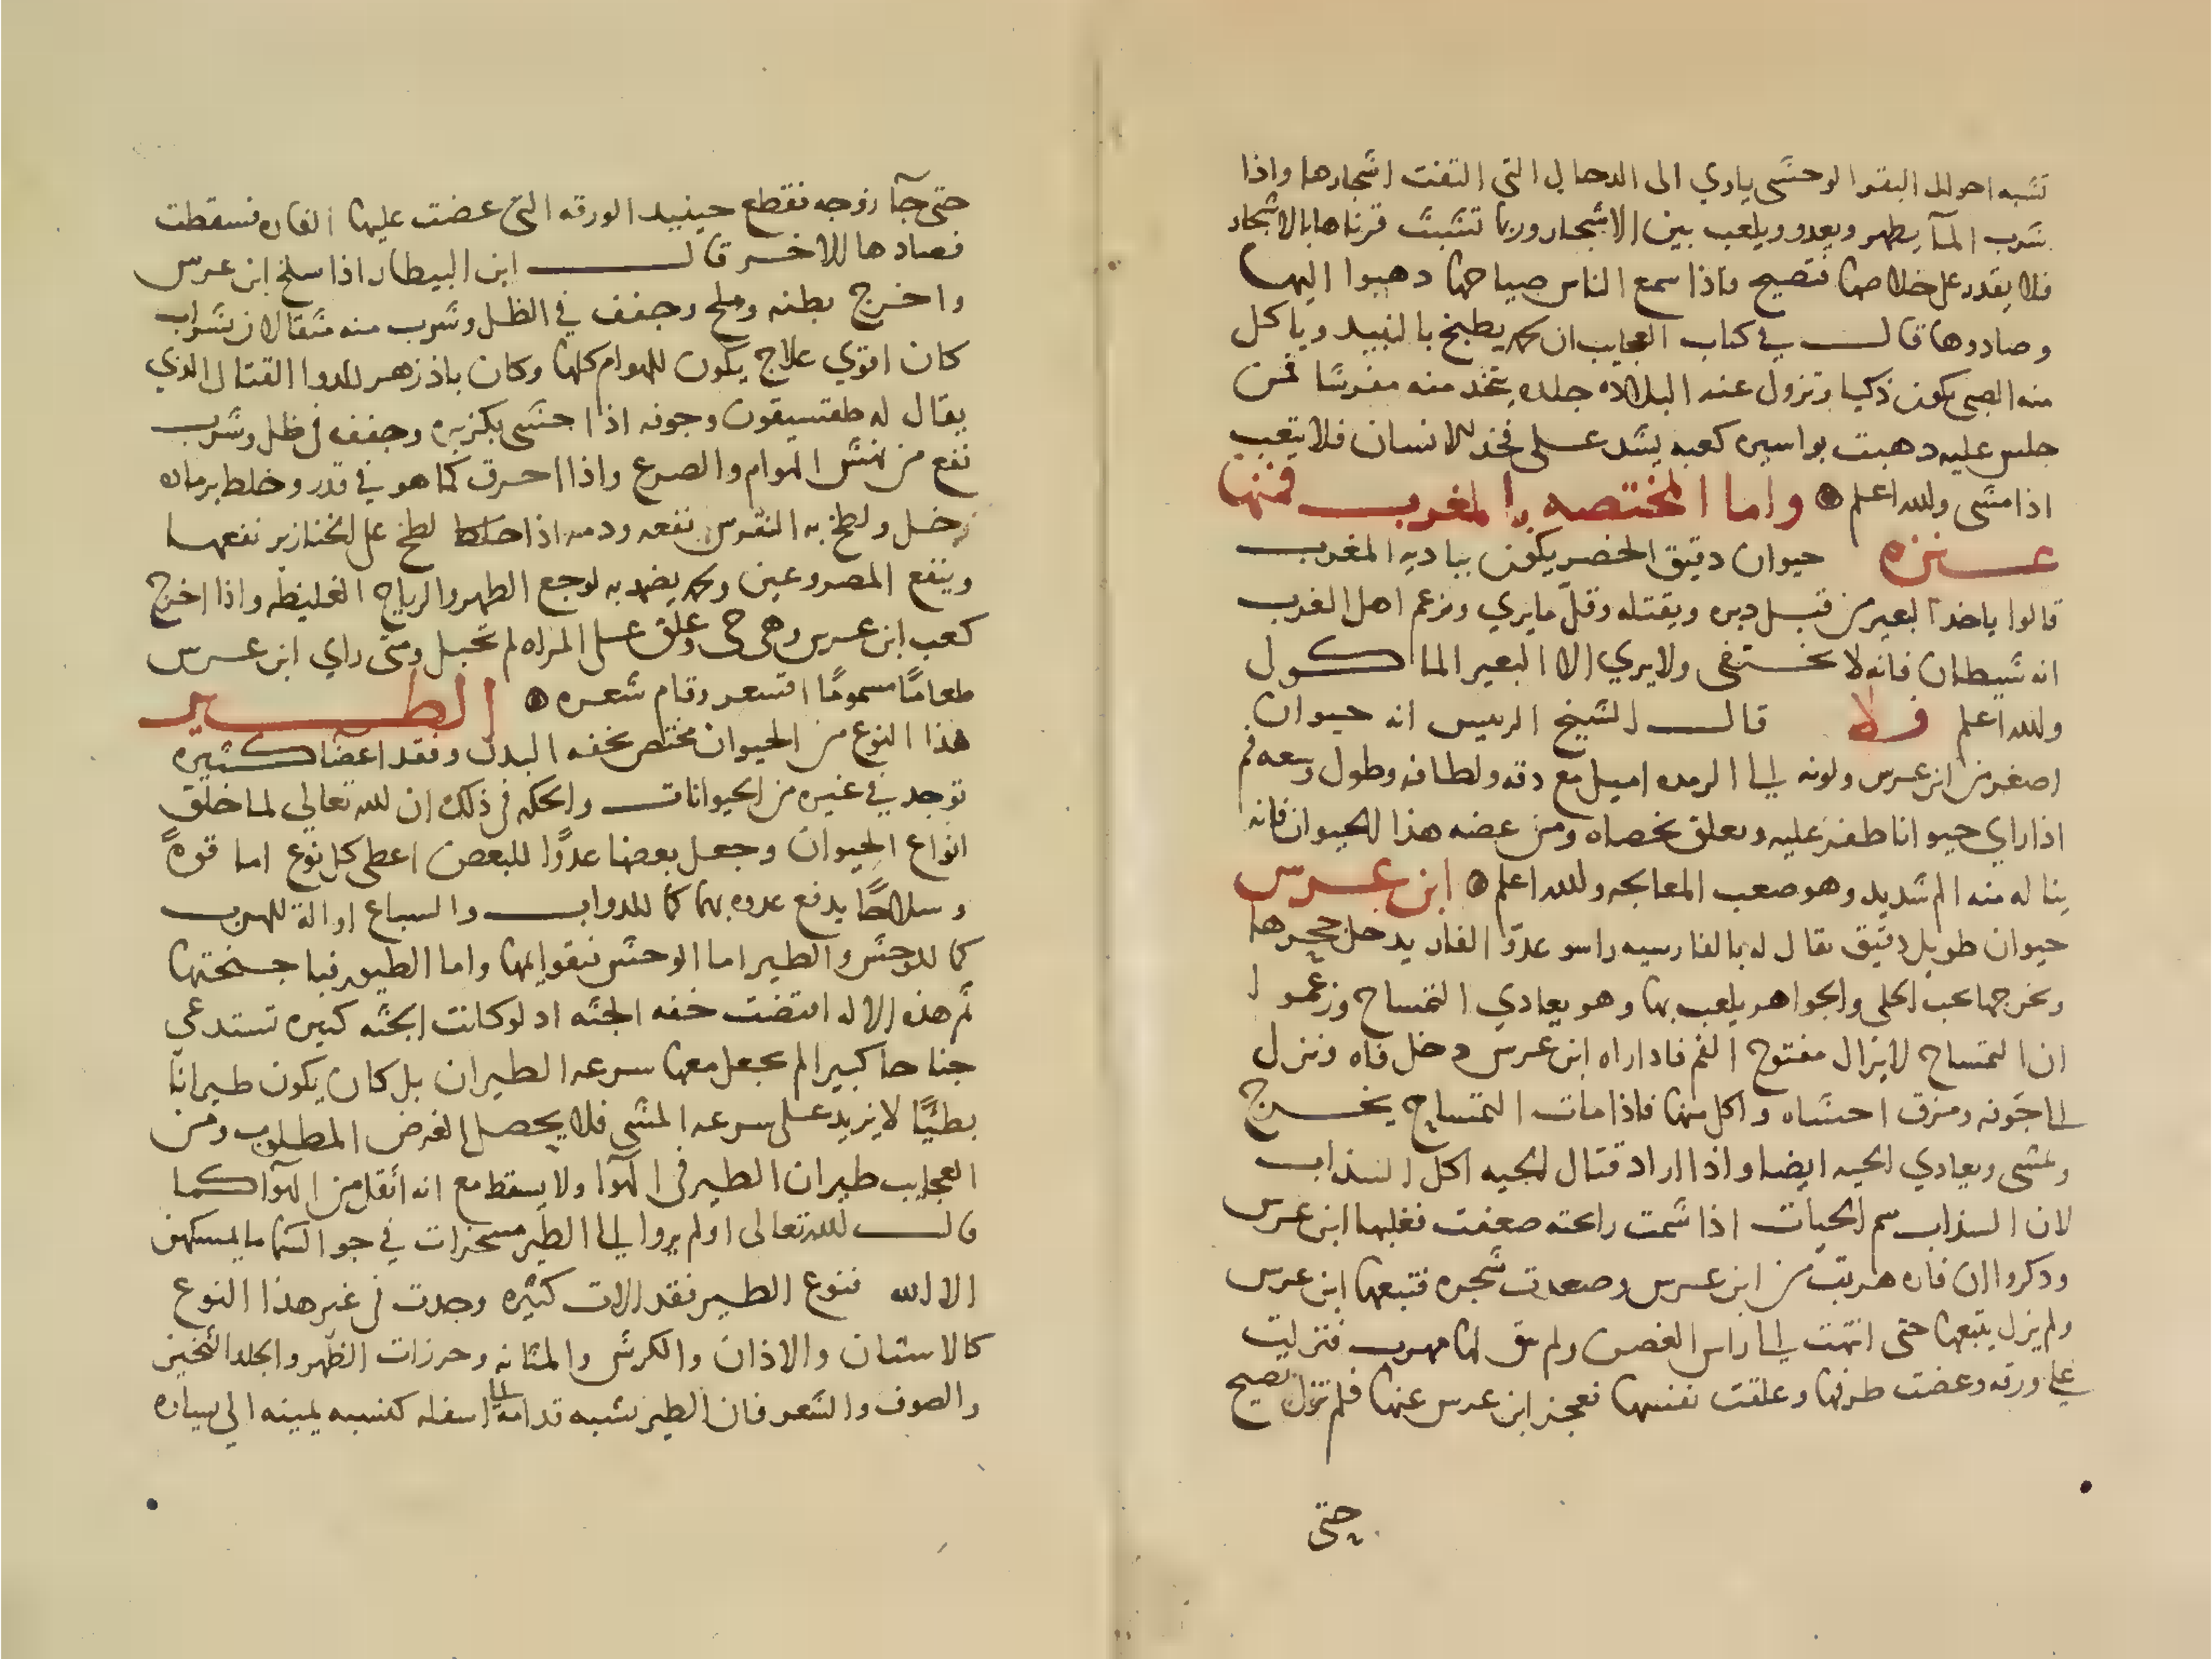 تشبه احوال البقر الوحشى ياوي الى الدحال التى التفت اشجارها واذا
شرب المآ يظهر ويعدو ويلعب بين الاشجار وربما تشبث قرناها بالاشجار
فلا يقدر على خلاصها فتصيح فاذا سمع الناس صياحها دهبوا اليها
وصادوها قال في كتاب العجايب ان لحمه يطبخ بالنبيد وياكل
منه الصبى يكون ذكيا وتزول عنه البلاده جلده يتخد منه مفرشا فمن
جلس عليه دهبت بواسيره كعبه يشد على فخد الانسان فلا يتعب
اذا مشى والله اعلم واما المختصه بالمغرب فمنها
عنزه حيوان دقيق الخصر يكون بباديه المغرب
قالوا ياخد البعير من قبل دبره ويقتله وقل ما يري ويزعم اهل الغرب
انه شيطان فانه لا يختفى ولا يري الا البعير الماكول
والله اعلم فلا قال الشيخ الرييس انه حيوان
اصغر من ابن عرس ولونه الى الرمده اميل مع دقه ولطافه وطول وسعه فم
اذا راي حيوانا طفر عليه وتعلق بخصاه ومن عضه هذا الحيوان فانه
يناله منه الم شديد وهو صعب المعالجه والله اعلم ابن عرس
حيوان طويل دقيق يقال له بالفارسيه راسو عدو الفار يدخل جحرها
ويخرجها يحب الحلى والجواهر يلعب بها وهو يعادي التمساح وزعموا
ان التمساح لا يزال مفتوح الفم فاذا راه ابن عرس دخل فاه ونزل
الى جوفه ومزق احشاه واكل منها فاذا مات التمساح يخرج
ويمشى ويعادي الحيه ايضا واذا اراد قتال الحيه اكل السذاب
لان السذاب سم الحيات اذا شمت رايحته ضعفت فغلبها ابن عرس
ودكروا ان فاره هربت من ابن عرس وصعدت شجره فتبعها ابن عرس
ولم يزل يتبعها حتى انتهت الى راس الغصن ولم يبق لها مهرب فنزلت
على ورقه وعضت طرفها وعلقت نفسها فعجز ابن عرس عنها فلم تزل تصيح
حتى
حتى جآ زوجه فقطع حينيد الورقه التى عضت عليها الفاره فسقطت
فصادها للاخر قال ابن البيطار اذا سلخ ابن عرس
واخرج بطنه وملح وجفف في الظل وشرب منه مثقالان بشراب
كان اقوي علاج يكون للهوام كلها وكان باذزهر للدوا القتال الذي
يقال له طفسيقون وجوفه اذا حشى بكزبره وجفف في ظل وشرب
نفع من نهش الهوام والصرع واذا احرق كما هو في قدر وخلط برماده
خل ولطخ به النقرس نفعه ودمه اذا لطخ على الخنازير نفعها
وينفع المصروعين ولحمه يضمد به لوجع الظهر والرياح الغليظه واذا اخرج
كعب ابن عرس وهى حى وعلق على المراه لم تحبل ومتى راي ابن عرس
طعاما مسموما اقشعر وقام شعره الطير
هذا النوع من الحيوان مختص بخفه البدن وفقد اعضا كثيره
توجد في غيره من الحيوانات والحكمه في ذلك ان الله تعالي لما خلق
انواع الحيوان وجعل بعضها عدوا للبعض اعطى كل نوع اما قوة
وسلاحا يدفع عدوه بها كما للدواب والسباع او الة للهرب
كما للوحش والطير اما الوحش فبقوايمها واما الطيور فباجنحتها
ثم هذه الاله اقتضت خفه الجثه اد لو كانت الجثه كبيره تستدعى
جناحا كبيرا لم يجعل معها سرعه الطيران بل كان يكون طيرانا
بطئيا لا يزيد على سرعه المشى فلا يحصل الغرض المطلوب ومن
العجايب طيران الطير في الهوآ ولا يسقط مع انه أثقل من الهوآ كما
قال الله تعالى اولم يروا الى الطير مسخرات في جو السما ما يمسكهن
الا الله فنوع الطير فقد الات كثيره وجدت في غير هذا النوع
كالاسنان والاذان والكرش والمثانه وخرزات الظهر والجلد الثخين
والصوف والشعر فان الطير نسبه قدامه الى اسفله كنسبه يمينه الى يساره